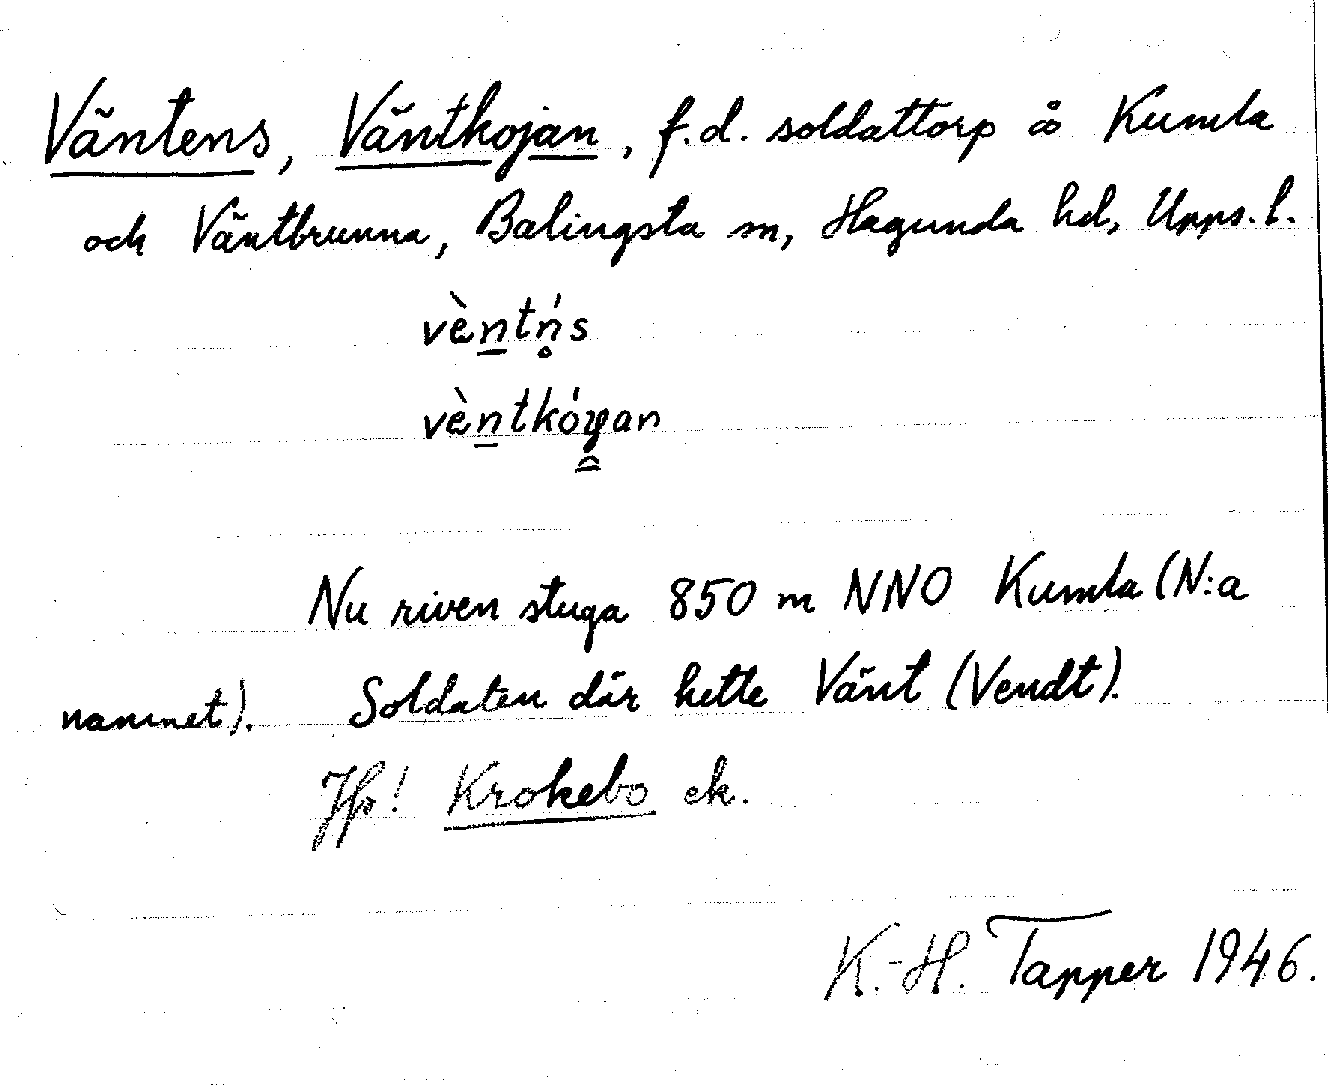 Väntens, Väntkojan, f.d. soldattorp å Kumla
och Väntbrunna, Balingsta sn, Hagunda hd, Upps. l.
vèn̲tń̥s
vèn̲tkóy̯an
Nu riven stuga 850 m NNO Kumla (N:a
namnet). Soldaten där hette Vänt (Vendt).
Jfr! Krokebo ek.
K.-H. Tapper 1946.